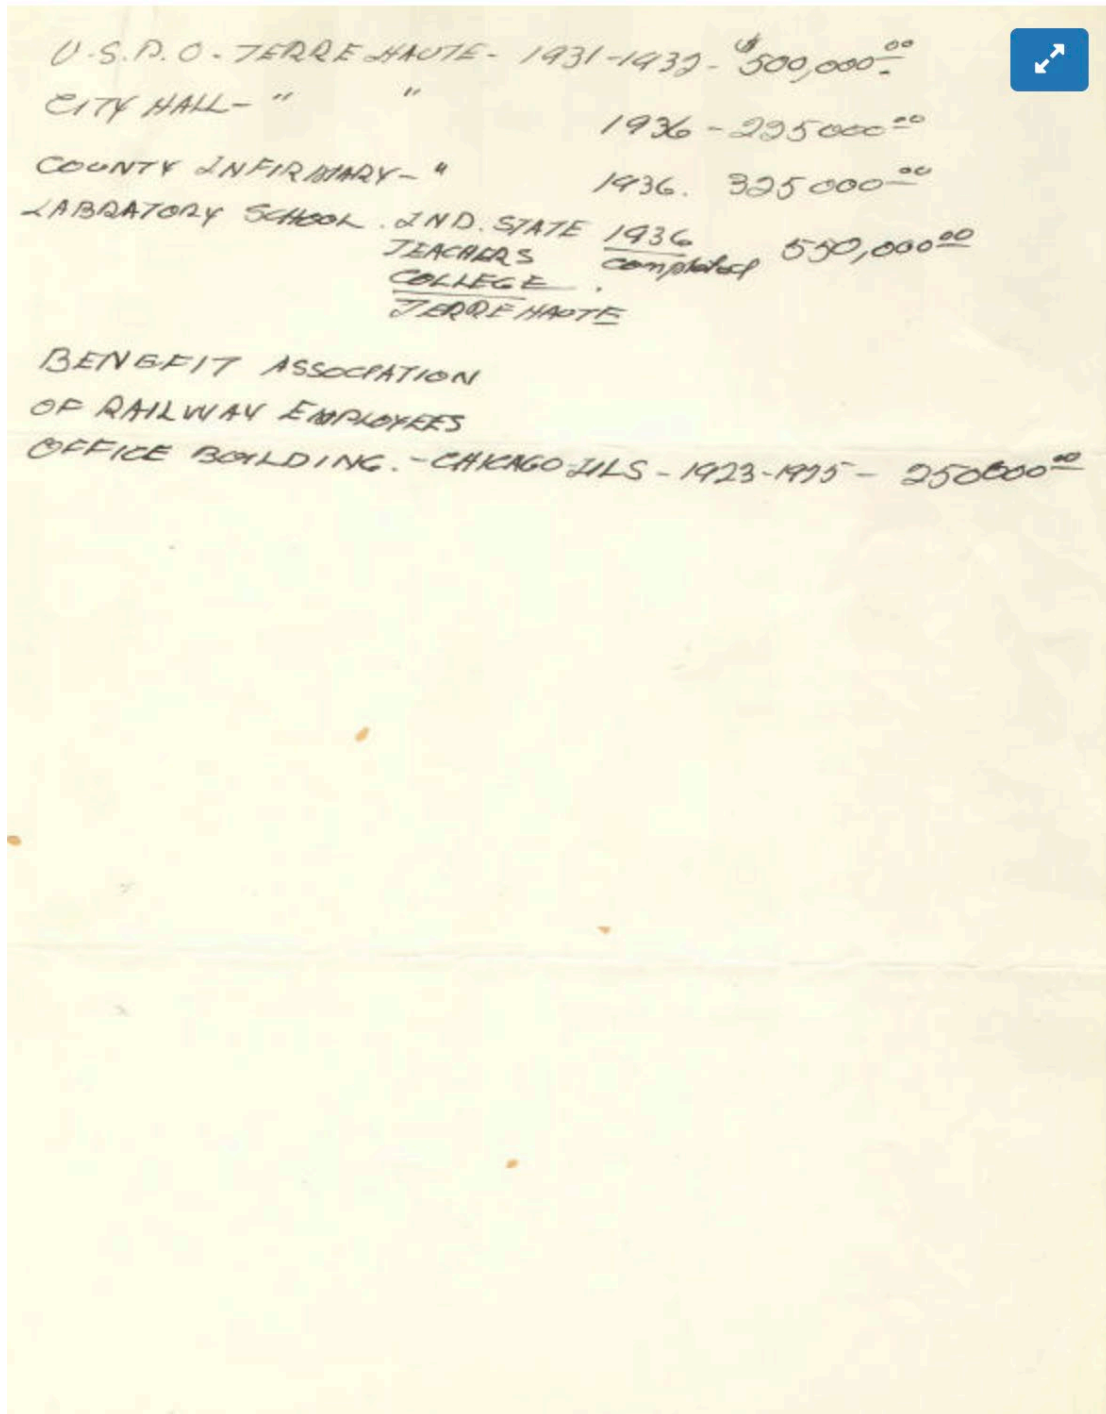 U.S.P.O. - TERRE HAUTE - 1931-1932 - $500,000.00
CITY HALL - " " 1936 - 225000.00
COUNTY INFIRMARY - " 1936. 325000.00
LABRATORY SCHOOL. IND. STATE 1936 550,000.00
TEACHERS completed
COLLEGE.
TERRE HAUTE
BENEFIT ASSOCIATION
OF RAILWAY EMPLOYEES
OFFICE BUILDING. - CHICAGO ILLS - 1923-1925 - 250000.00